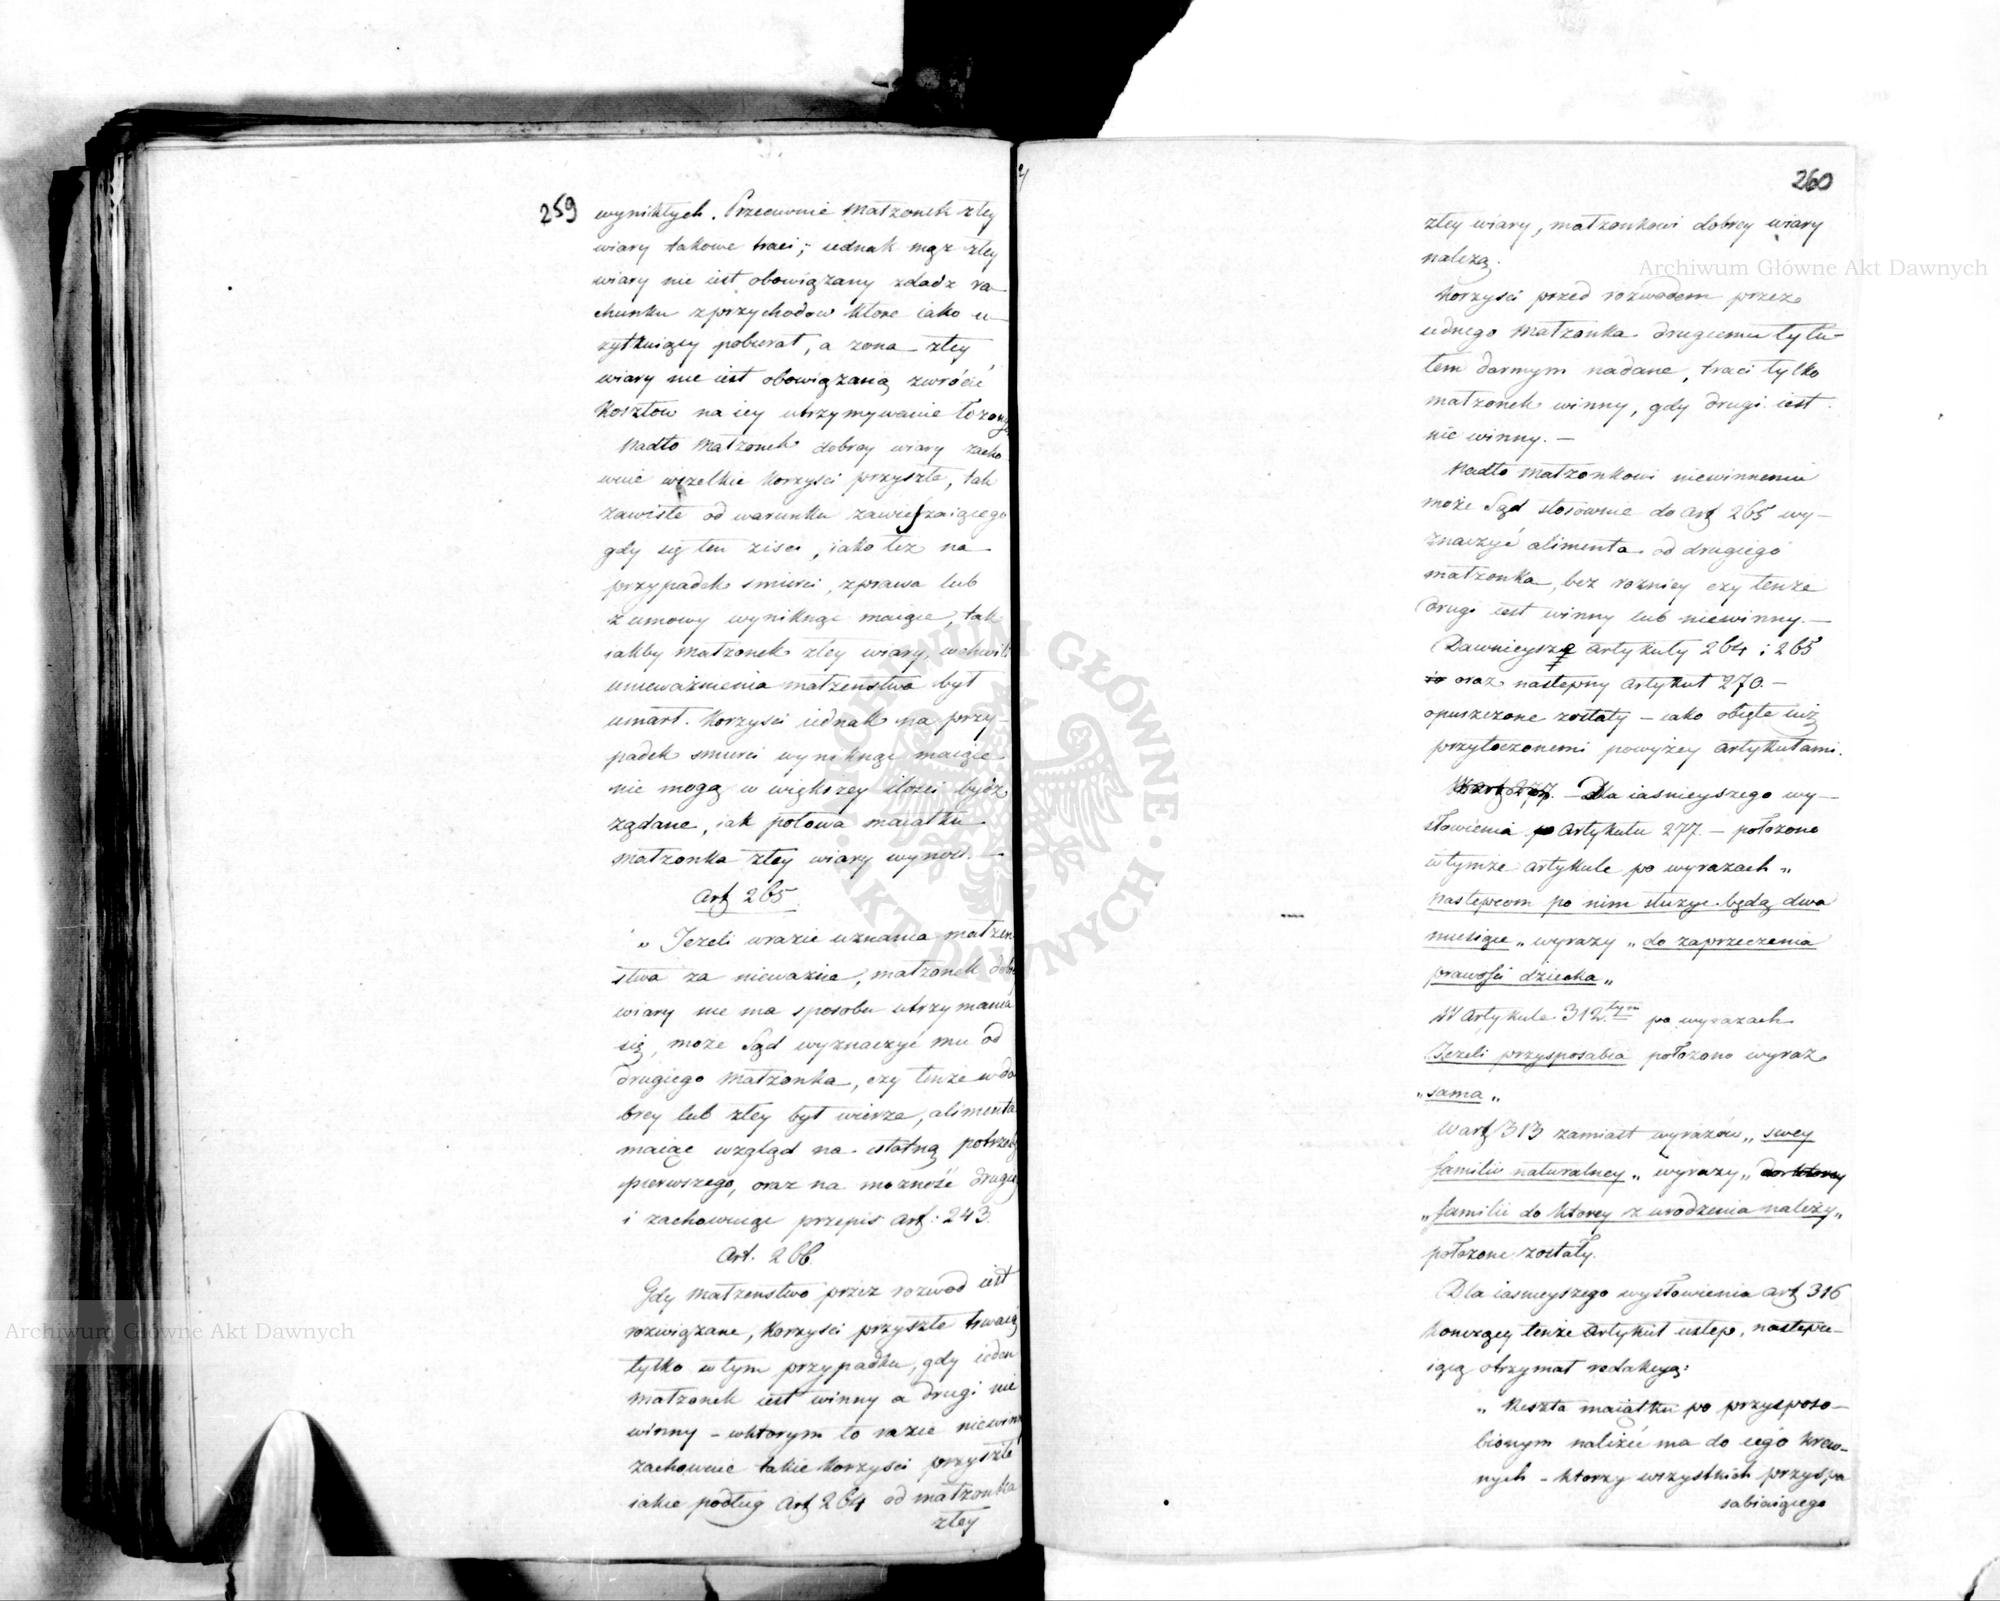 259
wyniktych. Przeciwnie Małzonek złey
wiary takowe traci; iednak mąz złey
wiary nie iest obowiązany zdadz ra-
chunku z przychodow ktore iako u-
zytkuiący pobierał, a zona złey
wiary nie iest obowiązaną zwrócic
Kosztow na iey utrzymywanie łozonych
Nadto Małzonek dobrey wiary zacho
wuie wszelkie korzysci przyszłe, tak
zawisłe od warunku zawieszaiącego
gdy się ten zisci, iako tez na
przypadek smierci, z prawa lub
z umowy wyniknąc maiące, tak
iakby Małzonek złey wiary, w chwili
uniewaznienia małzenstwa był
umarł. Korzysci iednak na przy-
padek smierci wyniknąc maiące
nie mogą w większey ilosci bydz
ządane, iak połowa maiatku
małzonka złey wiary wynosi. —
Art 265.
„ Jezeli w razie uznania małzen
stwa za niewazne, małzonek dobr
wiary nie ma sposobu utrzymania
się, moze Sąd wyznaczyć mu od
drugiego Małzonka, czy tenze w do
brey lub złey był wierze, alimenta
maiąc wzgląd na istotną potrzebę
pierwszego, oraz na moznosc drugie
i zachowuiąc przepis art: 243.
Art. 266.
Gdy Małzenstwo przez rozwod iest
rozwiązane, korzysci przyszłe trwaią
tylko w tym przypadku, gdy ieden
Małzonek iest winny a drugi nie
winny – w ktorym to razie niewinny
zachowuie takie korzysci przyszłe
iakie podług Art 264 od małzonka
złey
260
złey wiary, małzonkowi dobrey wiary
nalezą.
Korzysci przed rozwodem przez
iednego Małzonka drugiemu tytu-
łem darmym nadane, traci tylko
małzonek winny, gdy drugi iest
nie winny. —
Nadto Małzonkowi niewinnemu
może Sąd stosownie do art 265 wy-
znaczyć alimenta od drugiego
małzonka, bez roznicy czy tenze
drugi iest winny lub niewinny. —
Dawnieysze artykuły 264 i 265
oraz nastepny artykuł 270. —
opuszczone zostały – iako obięte iuż
przytoczonemi powyżey artykułami.
W art 277. — Dla iasnieyszego wy-
słowienia Artykułu 277. — połozono
w tymże artykule po wyrazach „
nastepcom po nim słuzyc będą dwa
miesiące „ wyrazy „ do zaprzeczenia
prawosci dziecka „
W Artykule 312.tym po wyrazach
Jezeli przysposabia połozono wyraz
„sama „
W art 313 zamiast wyrazów „ swey
familii naturalney „ wyrazy „ do ktorey
„familii do ktorey z urodzenia należy„
połozone zostały.
Dla iasnieyszego wysłowienia art 316
konczący tenże Artykuł ustęp, nastepu-
iącą otrzymał redakcyą:
„ Reszta maiątku po przysposo-
bionym nalezeć ma do iego krew-
nych – ktorzy wszystkich przyspo
sabiaiącego
ARCHIWUM GŁÓWNE AKT DAWNYCH
Archiwum Główne Akt Dawnych
Archiwum Główne Akt Dawnych